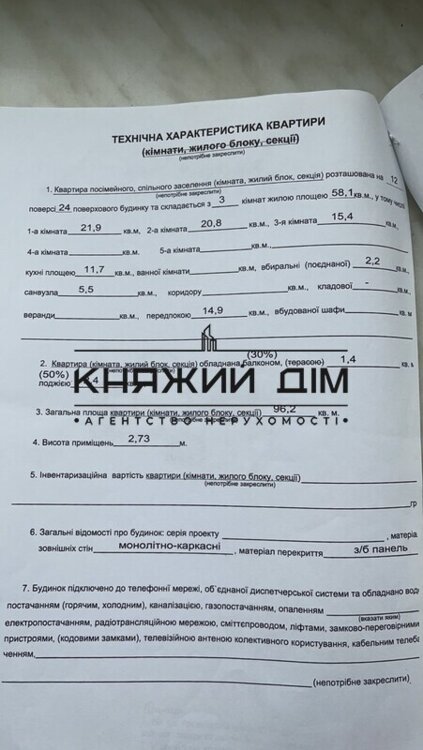 ТЕХНІЧНА ХАРАКТЕРИСТИКА КВАРТИРИ
(кімнати, жилого блоку, секції)
(непотрібне закреслити)
1. Квартира посімейного, спільного заселення (кімната, жилий блок, секція) розташована на 12
(непотрібне закреслити)
поверсі 24 поверхового будинку та складається з 3 кімнат жилою площею 58,1 кв.м., у тому числі
1-а кімната 21,9 кв.м, 2-а кімната 20,8 кв.м., 3-я кімната 15,4
4-а кімната кв.м. 5-а кімната кв.м.,
кухні площею 11,7 кв.м., ванної кімнати кв.м., вбиральні (поєднаної) 2,2
санвузла 5,5 кв.м., коридору кв.м., кладової - кв.м.,
веранди кв.м., передпокою 14,9 кв.м., вбудованої шафи кв. м
(30%)
2. Квартира (кімната, жилий блок, секція) обладнана балконом, (терасою) 1,4 кв. м
(50%)
лоджією
КНЯЖИЙ ДІМ
3. Загальна площа квартири (кімнати, жилого блоку, секції) 96,2 кв. м.
(непотрібне закреслити)
•АГЕНТСТВО НЕРУХОМОСТІ•
4. Висота приміщень 2,73 м.
5. Інвентаризаційна вартість квартири (кімнати, жилого блоку, секції)
(непотрібне закреслити)
гр
6. Загальні відомості про будинок: серія проекту , матеріа
зовнішніх стін монолітно-каркасні , матеріал перекриття з/б панель
7. Будинок підключено до телефонної мережі, об'єднаної диспетчерської системи та обладнано вод
постачанням (горячим, холодним), каналізацією, газопостачанням, опаленням
(вказати яким)
електропостачанням, радіотрансляційною мережою, сміттєпроводом, ліфтами, замково-переговорними
пристроями, (кодовими замками), телевізійною антеною колективного користування, кабельним телеба
ченням,
(непотрібне закреслити)